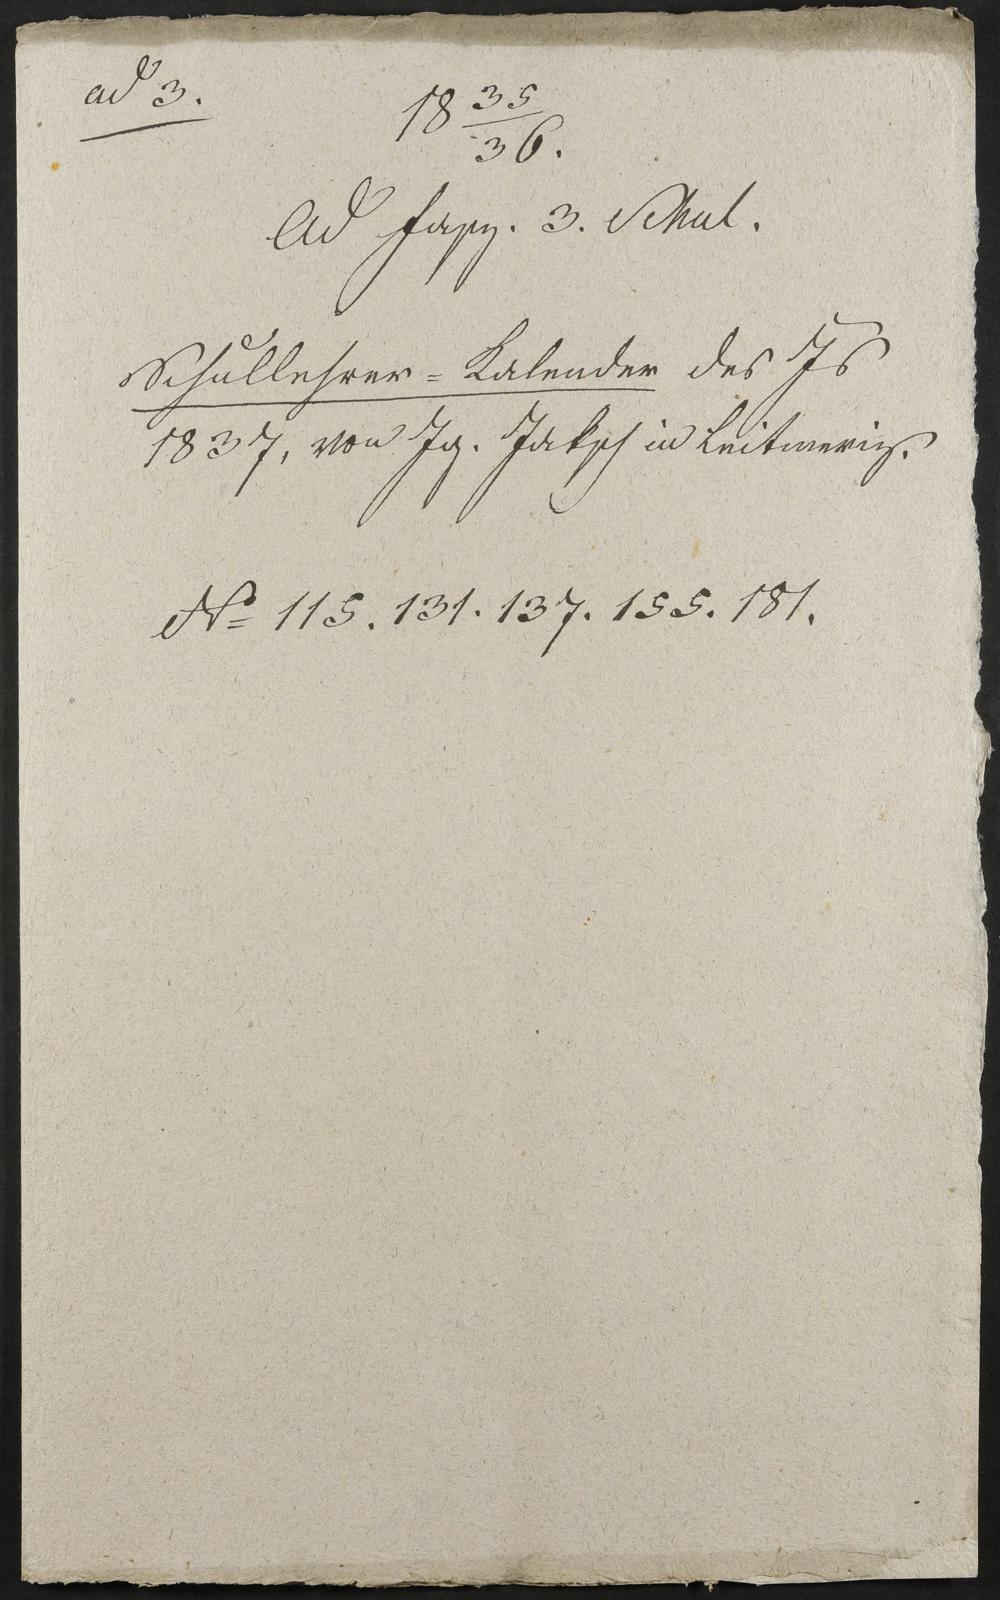 ad 3.
18 35/36.
Ad Fasz. 3. Schul.
Schullehrer=Kalender des Js
1837, von Jg. Jaksch in Leitmeritz.
No 115. 131. 137. 155. 181.